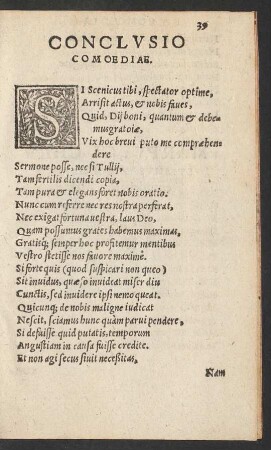 39
CONCLVSIO
COMOEDIAE.
SI Scenicus tibi, spectator optime,
Arrisit actus, & nobis faues,
Quid, Dij boni, quantum & debe-
mus gratiæ,
Vix hoc breui puto me compræhen-
dere
Sermone posse, nec si Tullij,
Tam fertilis dicendi copia,
Tam pura & elegans foret nobis oratio.
Nunc cum referre nec res nostra perferat,
Nec exigat fortuna uestra, laus Deo,
Quam possumus grates habemus maximas,
Gratisq; semper hoc profitemur mentibus
Vestro stetisse nos fauore maximè.
Si forte quis (quod suspicari non queo)
Sit inuidus, quæso inuideat miser diu
Cunctis, sed inuidere ipsi nemo queat.
Quicunq; de nobis maligne iudicat
Nescit, sciamus hunc quàm parui pendere,
Si defuisse quid putatis, temporum
Angustiam in causa fuisse credite.
Et non agi secus siuit necessitas,
Nam